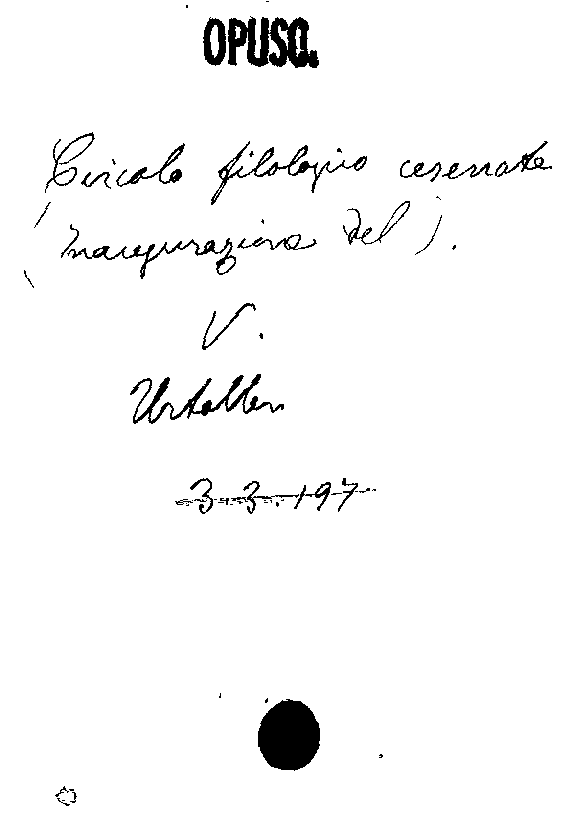 OPUSC.
Circolo filologico cesenate
(Inaugurazione del).
V.
Urtoller
3.3.197